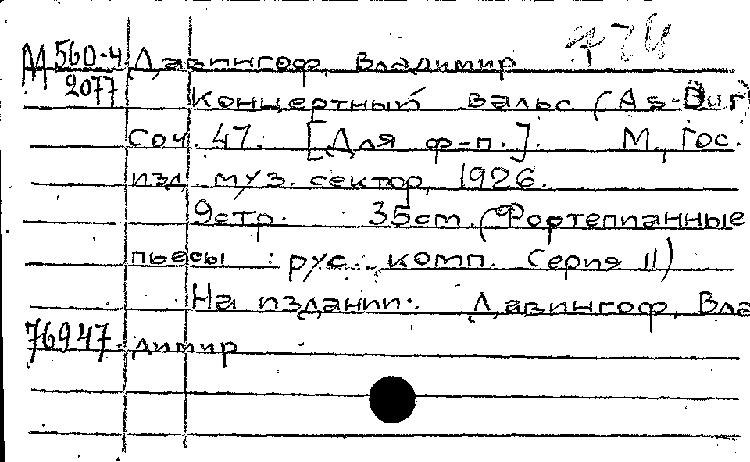 М 560-4 Давингоф, Владимир
2077
Концертный вальс (As-Dur)
Соч. 47. [Для ф-п.]. М., Гос.
изд. муз. сектор, 1926.
9стр. 35cm. (Фортепианные
пьесы : рус. комп. Серия II)
На издании: Давингоф, Вла
76947 димир